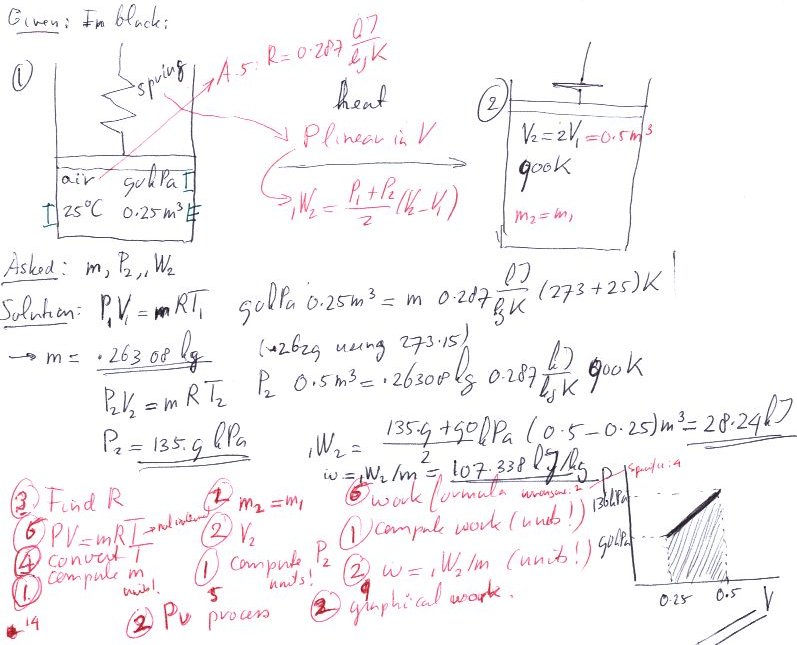 Given: In black:
①
spring
A.5: R = 0.287 kJ/kg K
heat
P linear in V
₁W₂ = (P₁ + P₂)/2 (V₂ − V₁)
air 90 kPa
25°C 0.25 m³
②
V₂ = 2V₁ = 0.5 m³
900K
m₂ = m₁
Asked: m, P₂, ₁W₂
Solution: P₁V₁ = mRT₁ 90 kPa 0.25 m³ = m 0.287 kJ/kg K (273 + 25) K
→ m = .26308 kg (.2629 using 273.15)
P₂V₂ = m R T₂ P₂ 0.5 m³ = .26308 kg 0.287 kJ/kg K 900K
P₂ = 135.9 kPa
₁W₂ = (135.9 + 90)/2 kPa (0.5 − 0.25) m³ = 28.24 kJ
w = ₁W₂/m = 107.338 kJ/kg
③ Find R
⑤ PV = mRT
④ convert T
① compute m units!
14
② m₂ = m₁
② V₂
① compute P₂ units!
5
② Pv process
⑥ work formula
① compute work (units!)
② w = ₁W₂/m (units!)
9
② graphical work.
P
136 kPa
90 kPa
0.25 0.5 V